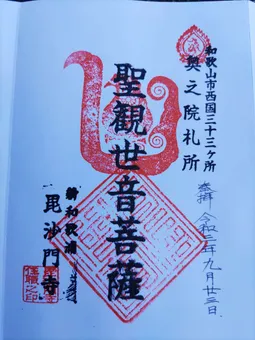 和歌山市西国三十三ヶ所
奥之院札所
奉拝 令和三年九月廿三日
聖観世音菩薩
新和歌浦
毘沙門寺